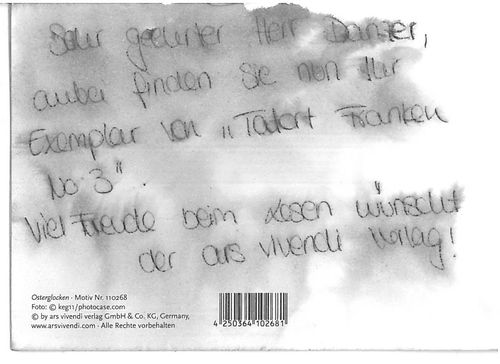 Sehr geehrter Herr Danzer,
anbei finden Sie nun Ihr
Exemplar von „Tatort Franken
No 3".
Viel Freude beim Lesen wünscht
der ars vivendi Verlag!
Osterglocken · Motiv Nr. 110268
Foto: © keg11/photocase.com
© by ars vivendi verlag GmbH & Co. KG, Germany,
www.arsvivendi.com · Alle Rechte vorbehalten
4 250364 102681